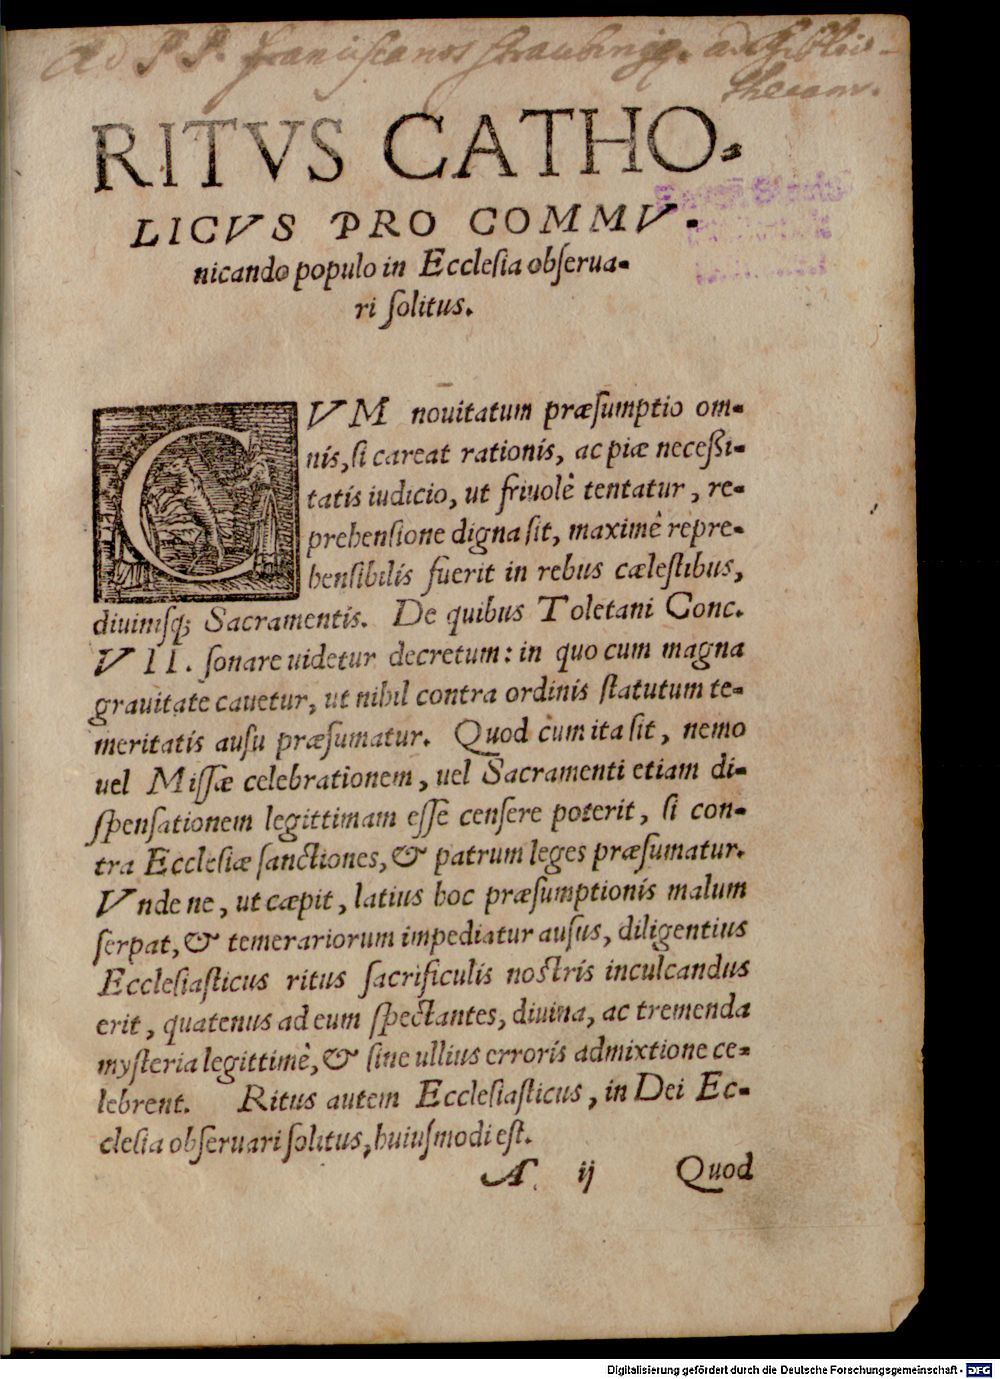 Ad P P. Franciscanos Straubingæ. ad Biblio-
thecam.
RITVS CATHO-
LICVS PRO COMMV-
nicando populo in Ecclesia obserua-
ri solitus.
CVM nouitatum præsumptio om-
nis, si careat rationis, ac piæ necessi-
tatis iudicio, ut friuolè tentatur, re-
prehensione digna sit, maximè repre-
hensibilis fuerit in rebus cælestibus,
diuinisq; Sacramentis. De quibus Toletani Conc.
VII. sonare uidetur decretum: in quo cum magna
grauitate cauetur, ut nihil contra ordinis statutum te-
meritatis ausu præsumatur. Quod cum ita sit, nemo
uel Missæ celebrationem, uel Sacramenti etiam di-
spensationem legittimam esse censere poterit, si con-
tra Ecclesiæ sanctiones, & patrum leges præsumatur.
Vnde ne, ut cæpit, latius hoc præsumptionis malum
serpat, & temerariorum impediatur ausus, diligentius
Ecclesiasticus ritus sacrificulis nostris inculcandus
erit, quatenus ad eum spectantes, diuina, ac tremenda
mysteria legittimè, & sine ullius erroris admixtione ce-
lebrent. Ritus autem Ecclesiasticus, in Dei Ec-
clesia obseruari solitus, huiusmodi est.
A ij Quod
Digitalisierung gefördert durch die Deutsche Forschungsgemeinschaft - DFG